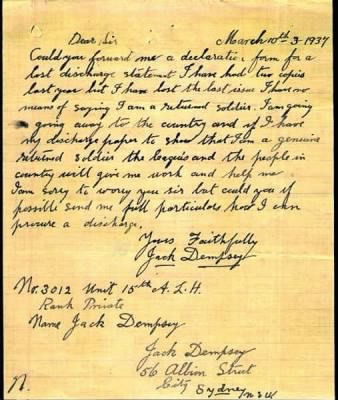 Dear Sir March 10th 3-1937
Could you forward me a declaration form for a
lost discharge statement I have had two copies
last year but I have lost the last issue I have no
means of saying I am a returned soldier. I am going
a going away to the country and if I have
my discharge paper to show that I am a genuine
returned soldier the leagues and the people in
country will give me work and help me
I am sorry to worry you sir but could you if
possible send me full particulars how I can
procure a discharge.
Yours Faithfully
Jack Dempsey
No. 3012 Unit 15th A.L.H.
Rank Private
Name Jack Dempsey
Jack Dempsey
56 Albion Street
City Sydney N.S.W
N.